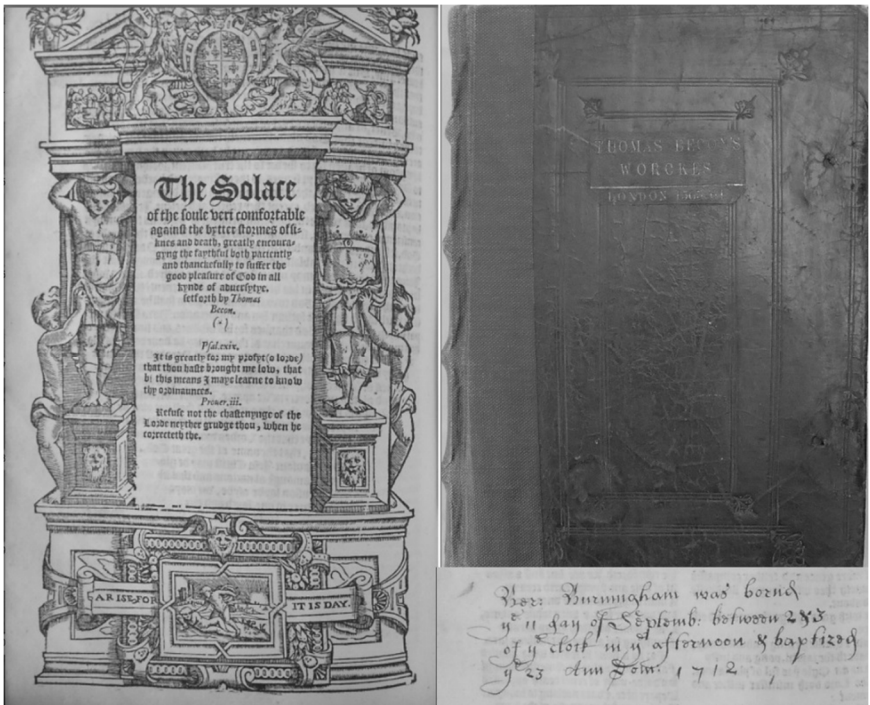 The Solace
of the soule veri comfortable
against the bytter stormes of sic-
knes and death, greatly encoura-
gyng the faythful both paciently
and thanckefully to suffer the
good pleasure of God in all
kynde of aduersytye.
setforth by Thomas
Becon.
(∴)
Psal.cxix.
It is greatly for my profyt (o lorde)
that thou haste brought me low, that
bi this means I maye learne to know
thy ordinaunces.
Prouer.iii.
Refuse not the chastenynge of the
Lorde neyther grudge thou, when he
correcteth the.
ARISE·FOR IT IS DAY.
THOMAS BECONS
WORCKES
LONDON
was bornd
yᵉ 11 day of Septemb: between 2 & 3
of yᵉ clock in yᵉ afternoon & baptized
yᵉ 23 Ann Dom: 1712